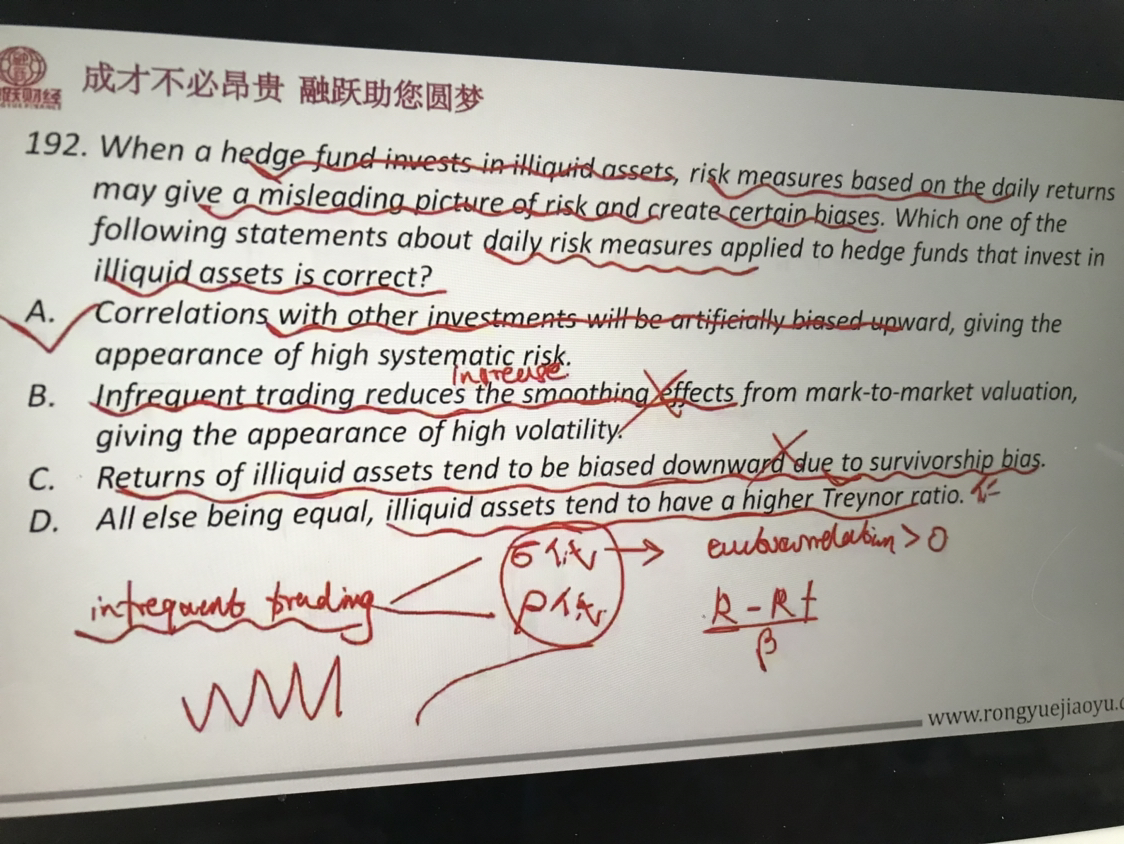 成才不必昂贵 融跃助您圆梦
192. When a hedge fund invests in illiquid assets, risk measures based on the daily returns
may give a misleading picture of risk and create certain biases. Which one of the
following statements about daily risk measures applied to hedge funds that invest in
illiquid assets is correct?
A. Correlations with other investments will be artificially biased upward, giving the
appearance of high systematic risk.
increase
B. Infrequent trading reduces the smoothing effects from mark-to-market valuation,
giving the appearance of high volatility.
C. Returns of illiquid assets tend to be biased downward due to survivorship bias.
D. All else being equal, illiquid assets tend to have a higher Treynor ratio.
infrequent trading
> 0
R - Rf
β
www.rongyuejiaoyu.